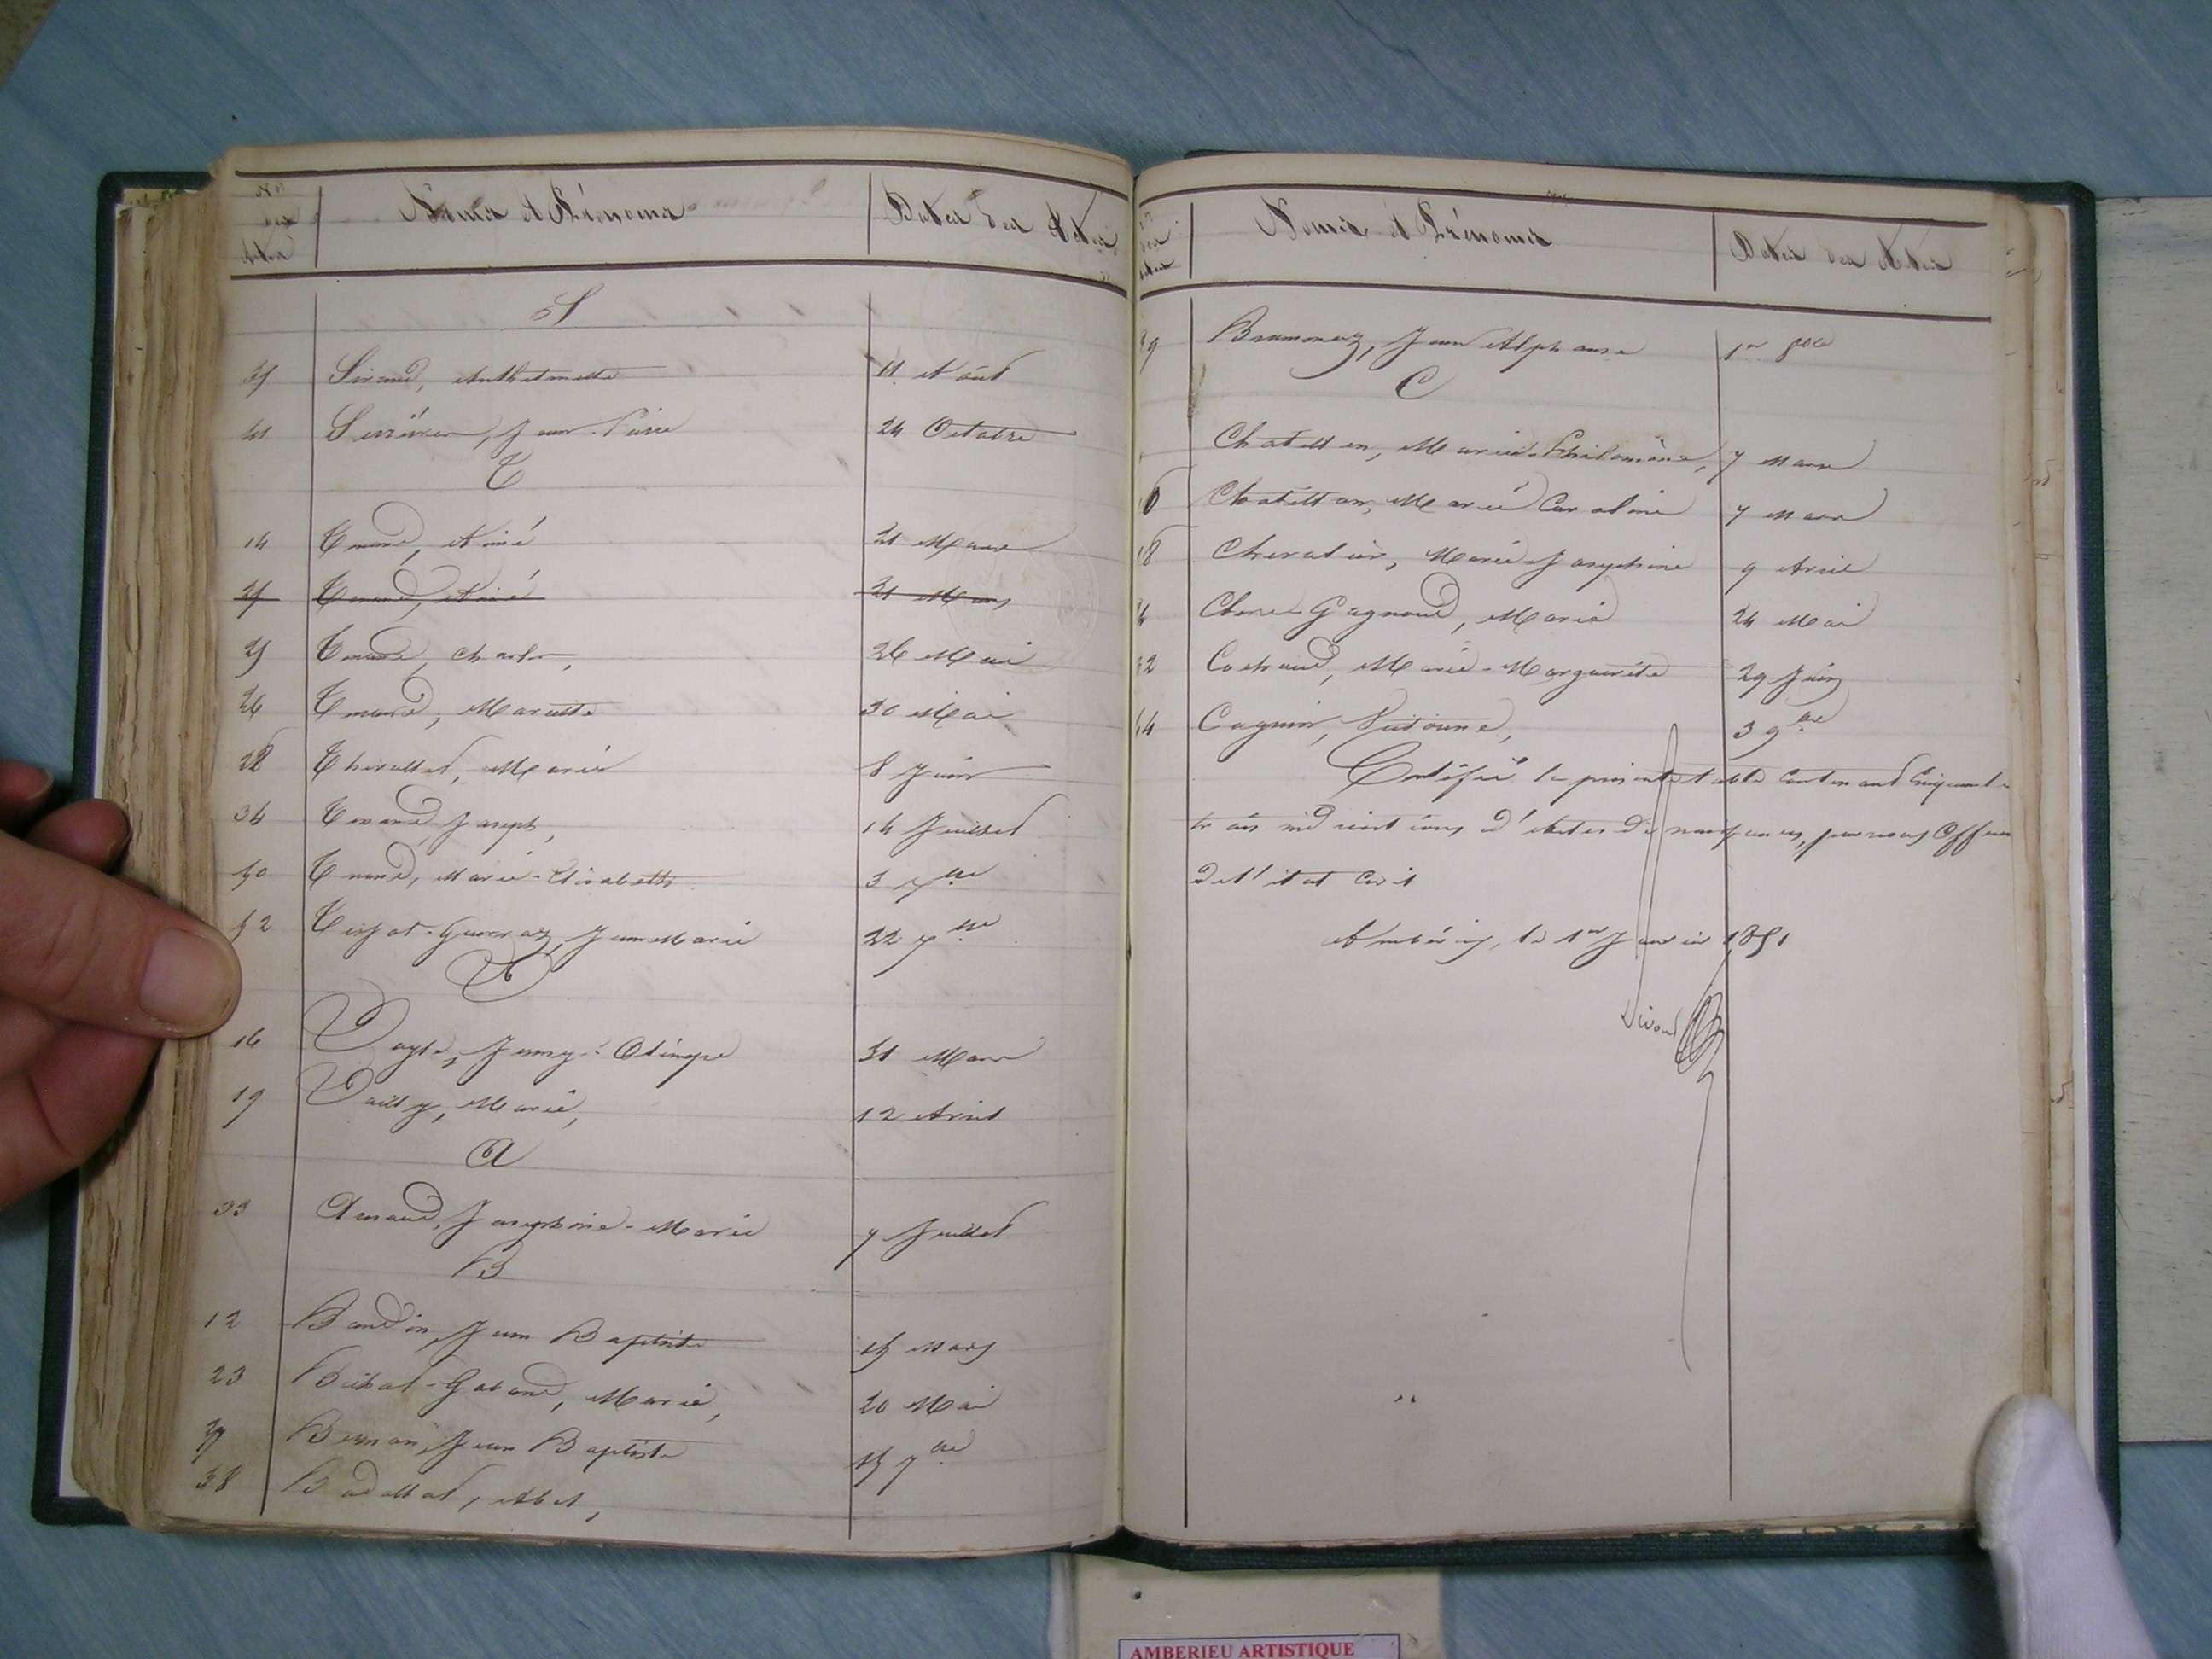 Nos des Actes Noms et Prénoms Dates des Actes
S
Sirand, Anthelmette 11 Août
41 Jean-Pierre 24 Octobre
T
14 Tenand, Aimé 21 Mars
Tenand, Aimé 21 Mars
25 Tenand, Charles, 26 Mai
26 Tenand, Mariette 30 Mai
28 Marie 8 Juin
34 Tenand Joseph, 14 Juillet
50 Tenand, Marie-Elisabeth 3 xbre
52 Jean Marie 22 xbre
V
16 Jenny-Olimpe 31 Mars
19 Vailly, Marie, 12 Avril
A
33 Arnaud, Joséphine-Marie 7 Juillet
B
12 Baudin, Jean Baptiste 15 Mars
23 Marie, 20 Mai
Jean Baptiste 15 7bre
38 Abel,
Nos des Actes Noms et Prénoms Dates des Actes
39 Jean Alphonse 1er 8bre
C
Chatillon, Marie-Philomène, 7 Mars
Chatillon, Marie Caroline 7 Mars
18 Chevalier, Marie-Josephine 9 Avril
24 Gagnoud, Marie 24 Mai
32 Cochaud, Marie-Marguerite 29 Juin
44 Cagnin, 3 9bre
Certifié la présente table contenant Cinquante
trois indications d'actes de naissances, par nous Officier
de l'état Civil
le 1er Janvier 1851
Sirand
AMBERIEU ARTISTIQUE